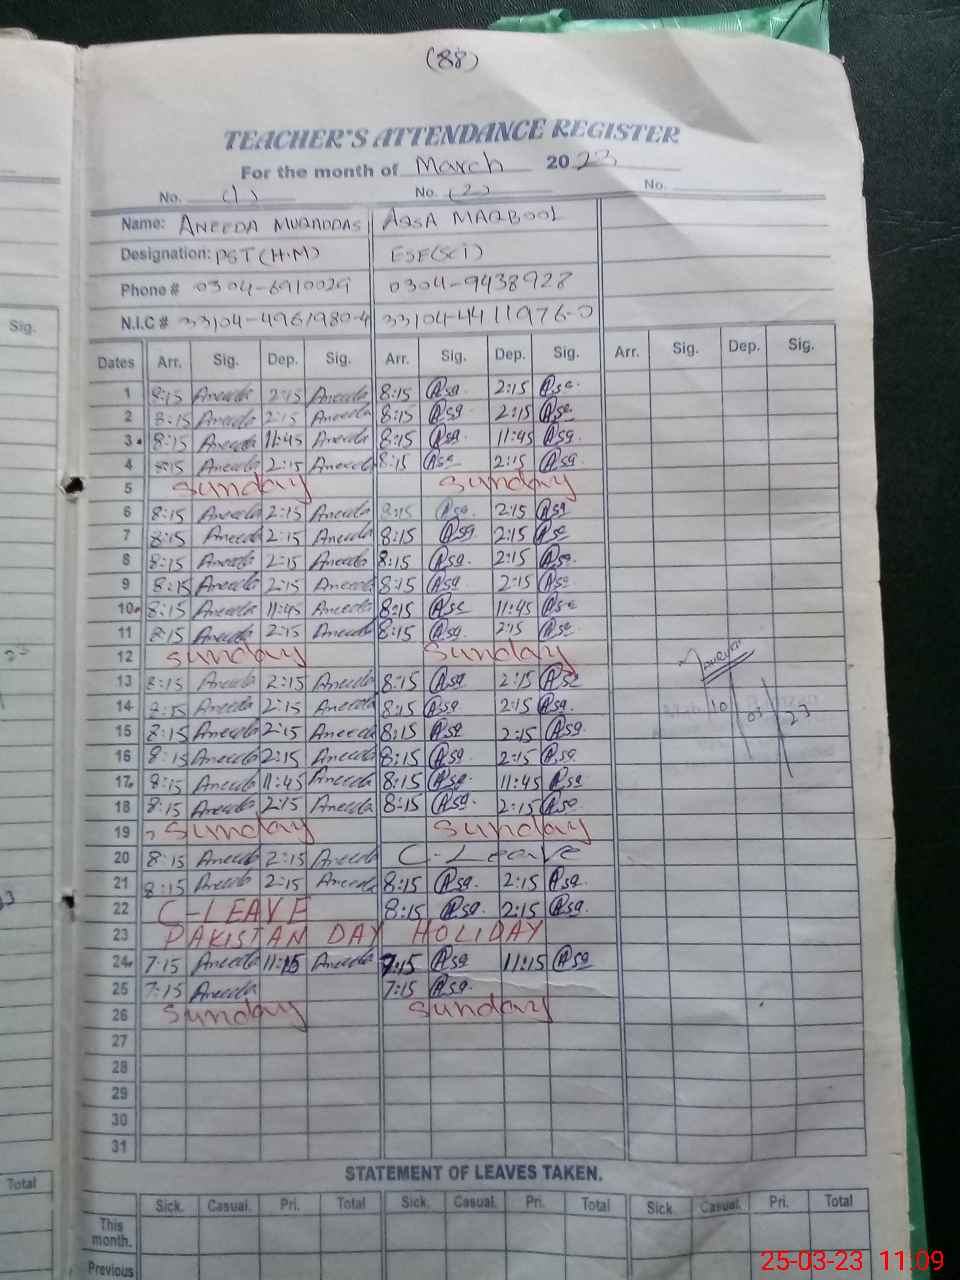 (88)
TEACHER'S ATTENDANCE REGISTER
For the month of March 2023
No. (1) No. (2) No.
Name: ANEEDA MUQADDAS AQSA MAQBOOL
Designation: PST (H.M) ESE(Sci)
Phone # 0304-6910029 0304-9438928
N.I.C # 33104-4961980-4 33104-4411976-0
Sig.
Dates Arr. Sig. Dep. Sig. Arr. Sig. Dep. Sig. Arr. Sig. Dep. Sig.
1 8:15 Aneeda 2:15 Aneeda 8:15 Asa 2:15 Asa
2 8:15 Aneeda 2:15 Aneeda 8:15 Asa 2:15 Asa
3 8:15 Aneeda 11:45 Aneeda 8:15 Asa 11:45 Asa
4 8:15 Aneeda 2:15 Aneeda 8:15 Asa 2:15 Asa
5 Sunday Sunday
6 8:15 Aneeda 2:15 Aneeda 8:15 Asa 2:15 Asa
7 8:15 Aneeda 2:15 Aneeda 8:15 Asa 2:15 Asa
8 8:15 Aneeda 2:15 Aneeda 8:15 Asa 2:15 Asa
9 8:15 Aneeda 2:15 Aneeda 8:15 Asa 2:15 Asa
10 8:15 Aneeda 11:45 Aneeda 8:15 Asa 11:45 Asa
11 8:15 Aneeda 2:15 Aneeda 8:15 Asa 2:15 Asa
12 Sunday Sunday
13 8:15 Aneeda 2:15 Aneeda 8:15 Asa 2:15 Asa
14 8:15 Aneeda 2:15 Aneeda 8:15 Asa 2:15 Asa 10 03 23
15 8:15 Aneeda 2:15 Aneeda 8:15 Asa 2:15 Asa
16 8:15 Aneeda 2:15 Aneeda 8:15 Asa 2:15 Asa
17 8:15 Aneeda 11:45 Aneeda 8:15 Asa 11:45 Asa
18 8:15 Aneeda 2:15 Aneeda 8:15 Asa 2:15 Asa
19 Sunday Sunday
20 8:15 Aneeda 2:15 Aneeda C-Leave
21 8:15 Aneeda 2:15 Aneeda 8:15 Asa 2:15 Asa
22 C-LEAVE 8:15 Asa 2:15 Asa
23 PAKISTAN DAY HOLIDAY
24 7:15 Aneeda 11:15 Aneeda 7:15 Asa 11:15 Asa
25 7:15 Aneeda 7:15 Asa
26 Sunday Sunday
27
28
29
30
31
STATEMENT OF LEAVES TAKEN.
Total
Sick. Casual. Pri. Total Sick. Casual. Pri. Total Sick. Casual. Pri. Total
This month.
Previous
25-03-23 11:09